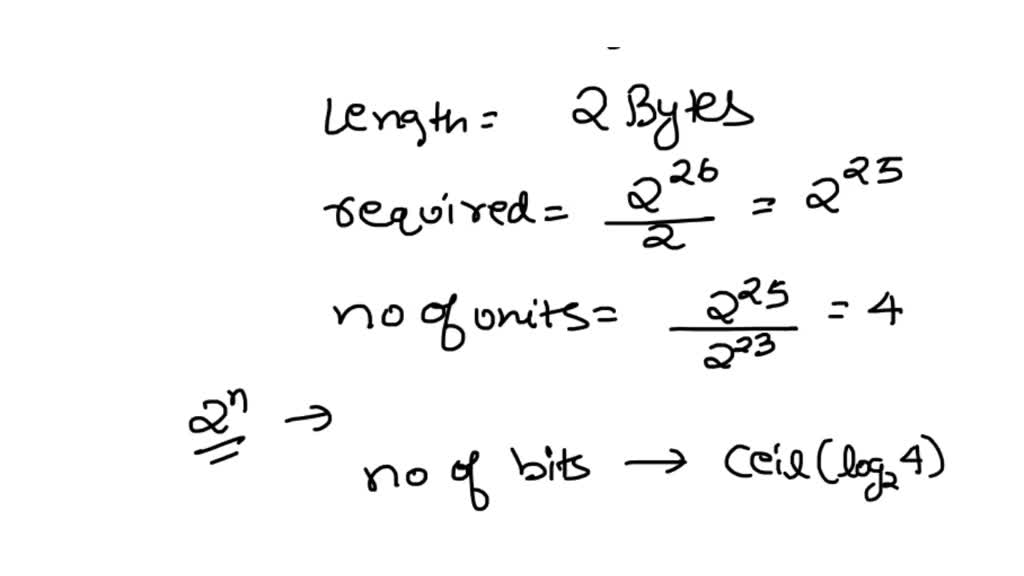 Length = 2 Bytes
required = 2^26 / 2 = 2^25
no of units = 2^25 / 2^23 = 4
2^n →
no of bits → Ceil(log₂ 4)